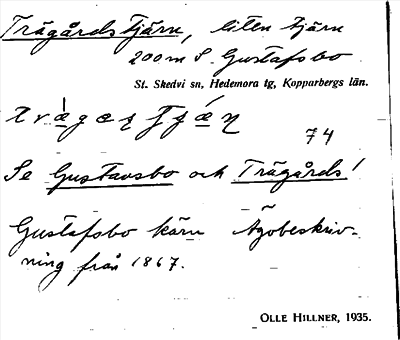 Trägårdstjärn, liten tjärn
200 m S. Gustafsbo
St. Skedvi sn, Hedemora tg, Kopparbergs län.
74
Se Gustavsbo och Trägårds!
Gustafsbo kärn Ägobeskriv-
ning från 1867.
OLLE HILLNER, 1935.